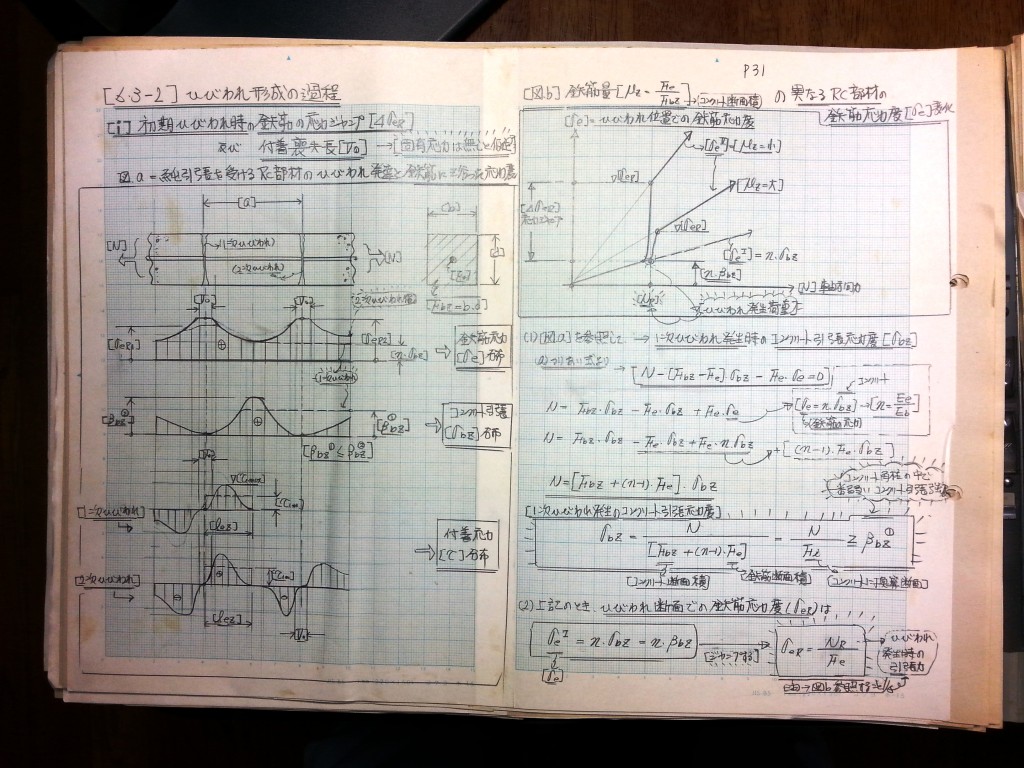 [6.3-2] ひびわれ形成の過程
[i] 初期ひびわれ時の鉄筋の応力ジャンプ[ΔσeR]
及び 付着喪失長[V₀] → [固有応力は無しと仮定]
図a = 純引張を受けるRC部材のひびわれ発生と鉄筋に
[a]
[b]
[N]
(1次ひびわれ)
(2次ひびわれ)
[N]
[d]
[Fe]
[Fbz=b・d]
[V₀]
[V₀]
[n・σbz]
鉄筋応力
[σe]分布
[βbz]①
[βbz]①
コンクリート引張
[σbz]分布
[βbz① ≦ βbz②]
[V₀]
[1次ひびわれ]
[lez]
付着応力
[τ]分布
[2次ひびわれ]
[lez]
[V₀]
P31
[図b] 鉄筋量[μz = Fe/Fbz]→(コンクリート断面積) の異なるRC部材の
鉄筋応力度[σe]変化
[σe]=ひびわれ位置での鉄筋応力度
[σeᴵᴵ][μz=小]
[σeR]
[μz=大]
[ΔσeR]
応力ジャンプ
[σeR]
[σeᴵ]=n・σbz
[n・βbz]
[N]
[NR]
ひびわれ発生荷重
(1) [図a]を参照して → 1次ひびわれ発生時のコンクリート引張応力度[σbz]
(a) つりあい式より → [N-[Fbz-Fe]・σbz-Fe・σe=0]
N = Fbz・σbz - Fe・σbz + Fe・σe → [σe=n・σbz] → [n=Ee/Eb]
コンクリート
(鉄筋応力)
N = Fbz・σbz - Fe・σbz + Fe・n・σbz → +[(n-1)・Fe・σbz]
N=[Fbz+(n-1)・Fe]・σbz
コンクリート部材の中で
コンクリート引張強度
[1次ひびわれ発生のコンクリート引張応力度]
σbz = N/[Fbz+(n-1)・Fe] = N/Fiz ≧ βbz①
[コンクリート断面積] [鉄筋断面積] [コンクリート換算断面]
(2) 上記のとき、ひびわれ断面での鉄筋応力度(σeR)は
σeᴵ = n・σbz = n・βbz [ジャンプする] σeR = NR/Fe
ひびわれ
発生時の
引張力
[σe]